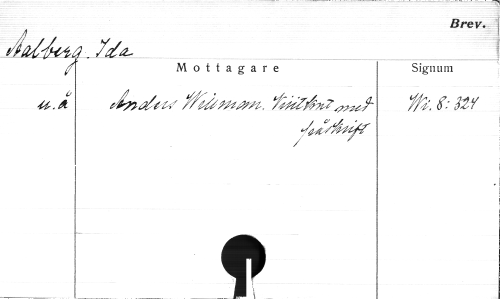 Brev.
Aalberg, Ida
Mottagare Signum
u.å Anders Willman. Visitkort med Wi. 8: 324
påskrift